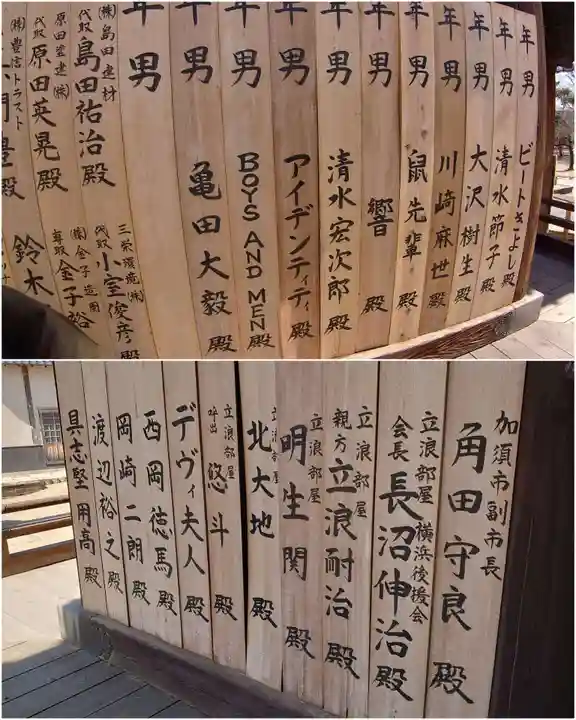 年男 ビートきよし殿
年男 清水節子殿
年男 大沢樹生殿
年男 川﨑麻世殿
年男 鼠先輩殿
年男 響殿
年男 清水宏次郎殿
年男 アイデンティティ殿
年男 BOYS AND MEN殿
年男 亀田大毅殿
年男
三栄環境㈱
代取 小室俊彦殿
㈱島田建材
代取 島田祐治殿
㈱金子造園
専取 金子裕
原田塗建㈱
代取 原田英晃殿
鈴木
㈱豊信トラスト
加須市副市長
角田守良殿
立浪部屋 横浜後援会
会長 長沼伸治殿
立浪部屋
親方 立浪耐治殿
立浪部屋
明生関殿
立浪部屋
北大地殿
立浪部屋
呼出 悠斗殿
デヴィ夫人殿
西岡徳馬殿
岡崎二朗殿
渡辺裕之殿
具志堅用高殿